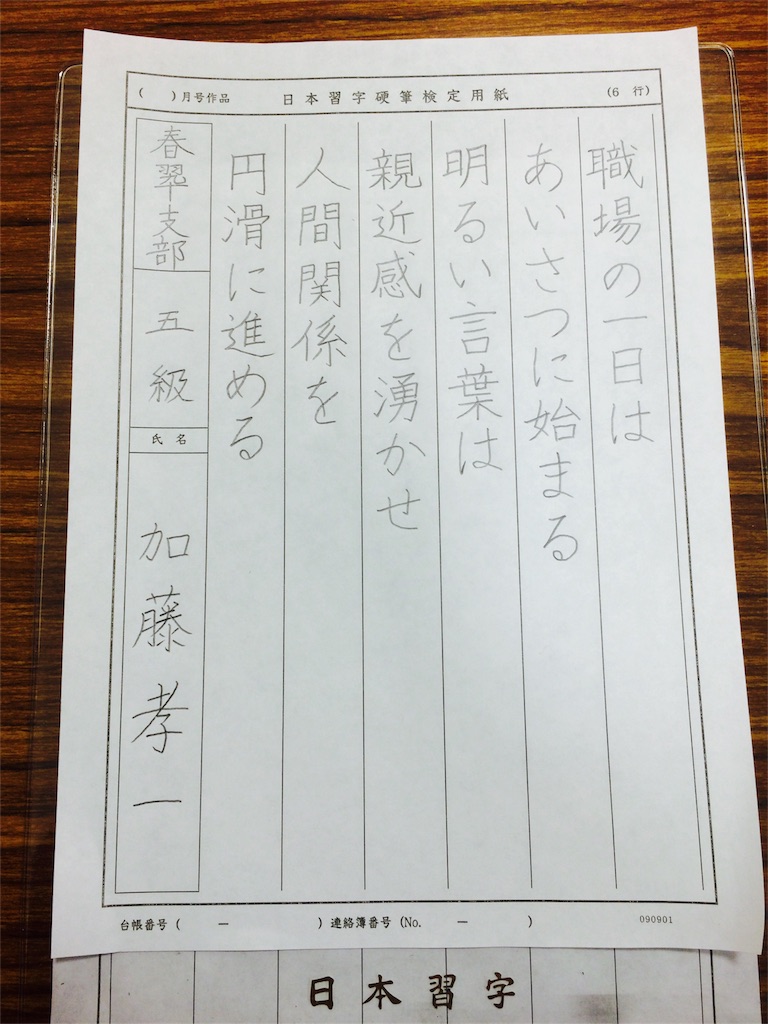 ( )月号作品 日本習字硬筆検定用紙 (6 行)
職場の一日は
あいさつに始まる
明るい言葉は
親近感を湧かせ
人間関係を
円滑に進める
春翠支部
五級
氏名
加藤孝一
台帳番号( － ) 連絡簿番号(No. － )
090901
日本習字